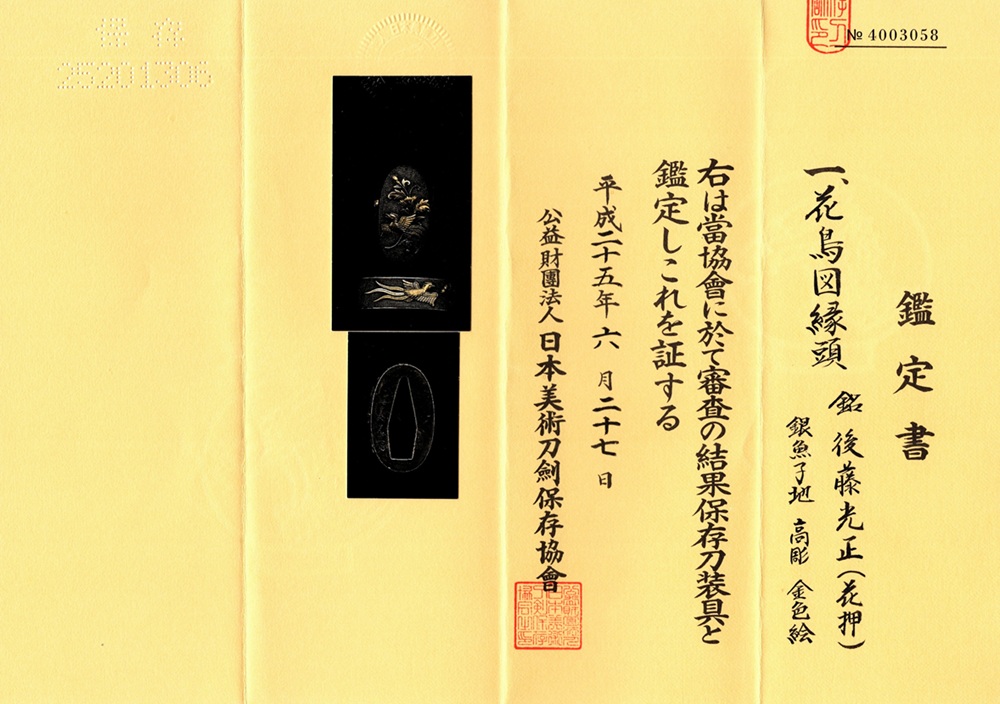 № 4003058
鑑定書
一、花鳥図縁頭
銘 後藤光正（花押）
銀魚子地 高彫 金色絵
右は當協會に於て審査の結果保存刀装具と
鑑定しこれを証する
平成二十五年 六 月 二十七 日
公益財團法人 日本美術刀劍保存協會
保存
25201306